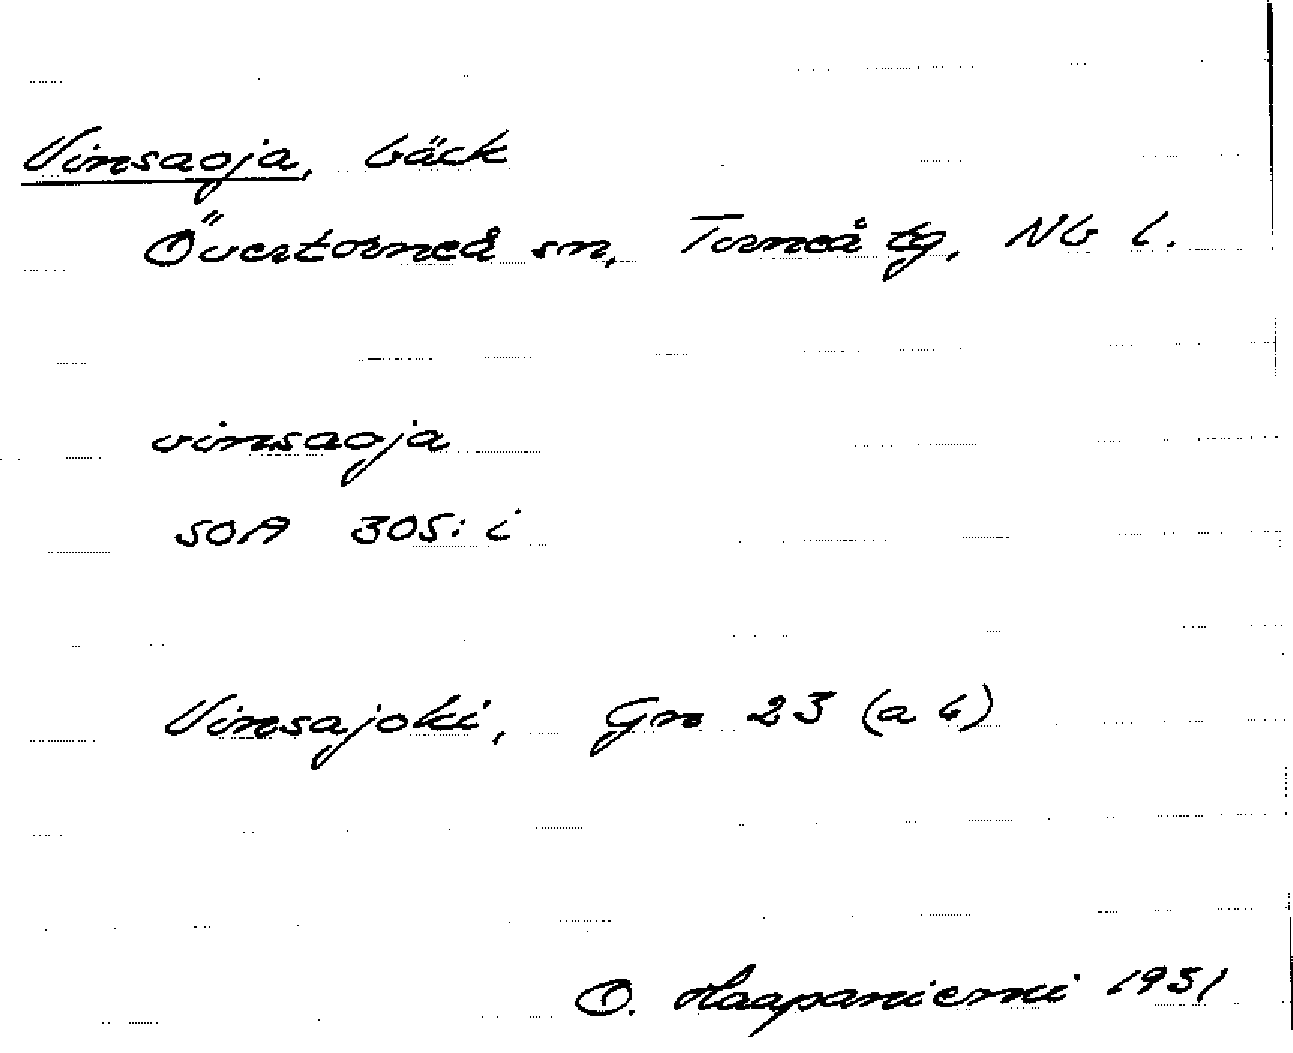 Vinsaoja, bäck
Övertorneå sn, Torneå tg, Nb l.
vinsaoja
SOA 305: i
Vinsajoki, Gn 23 (a b)
O. Haapaniemi 1951